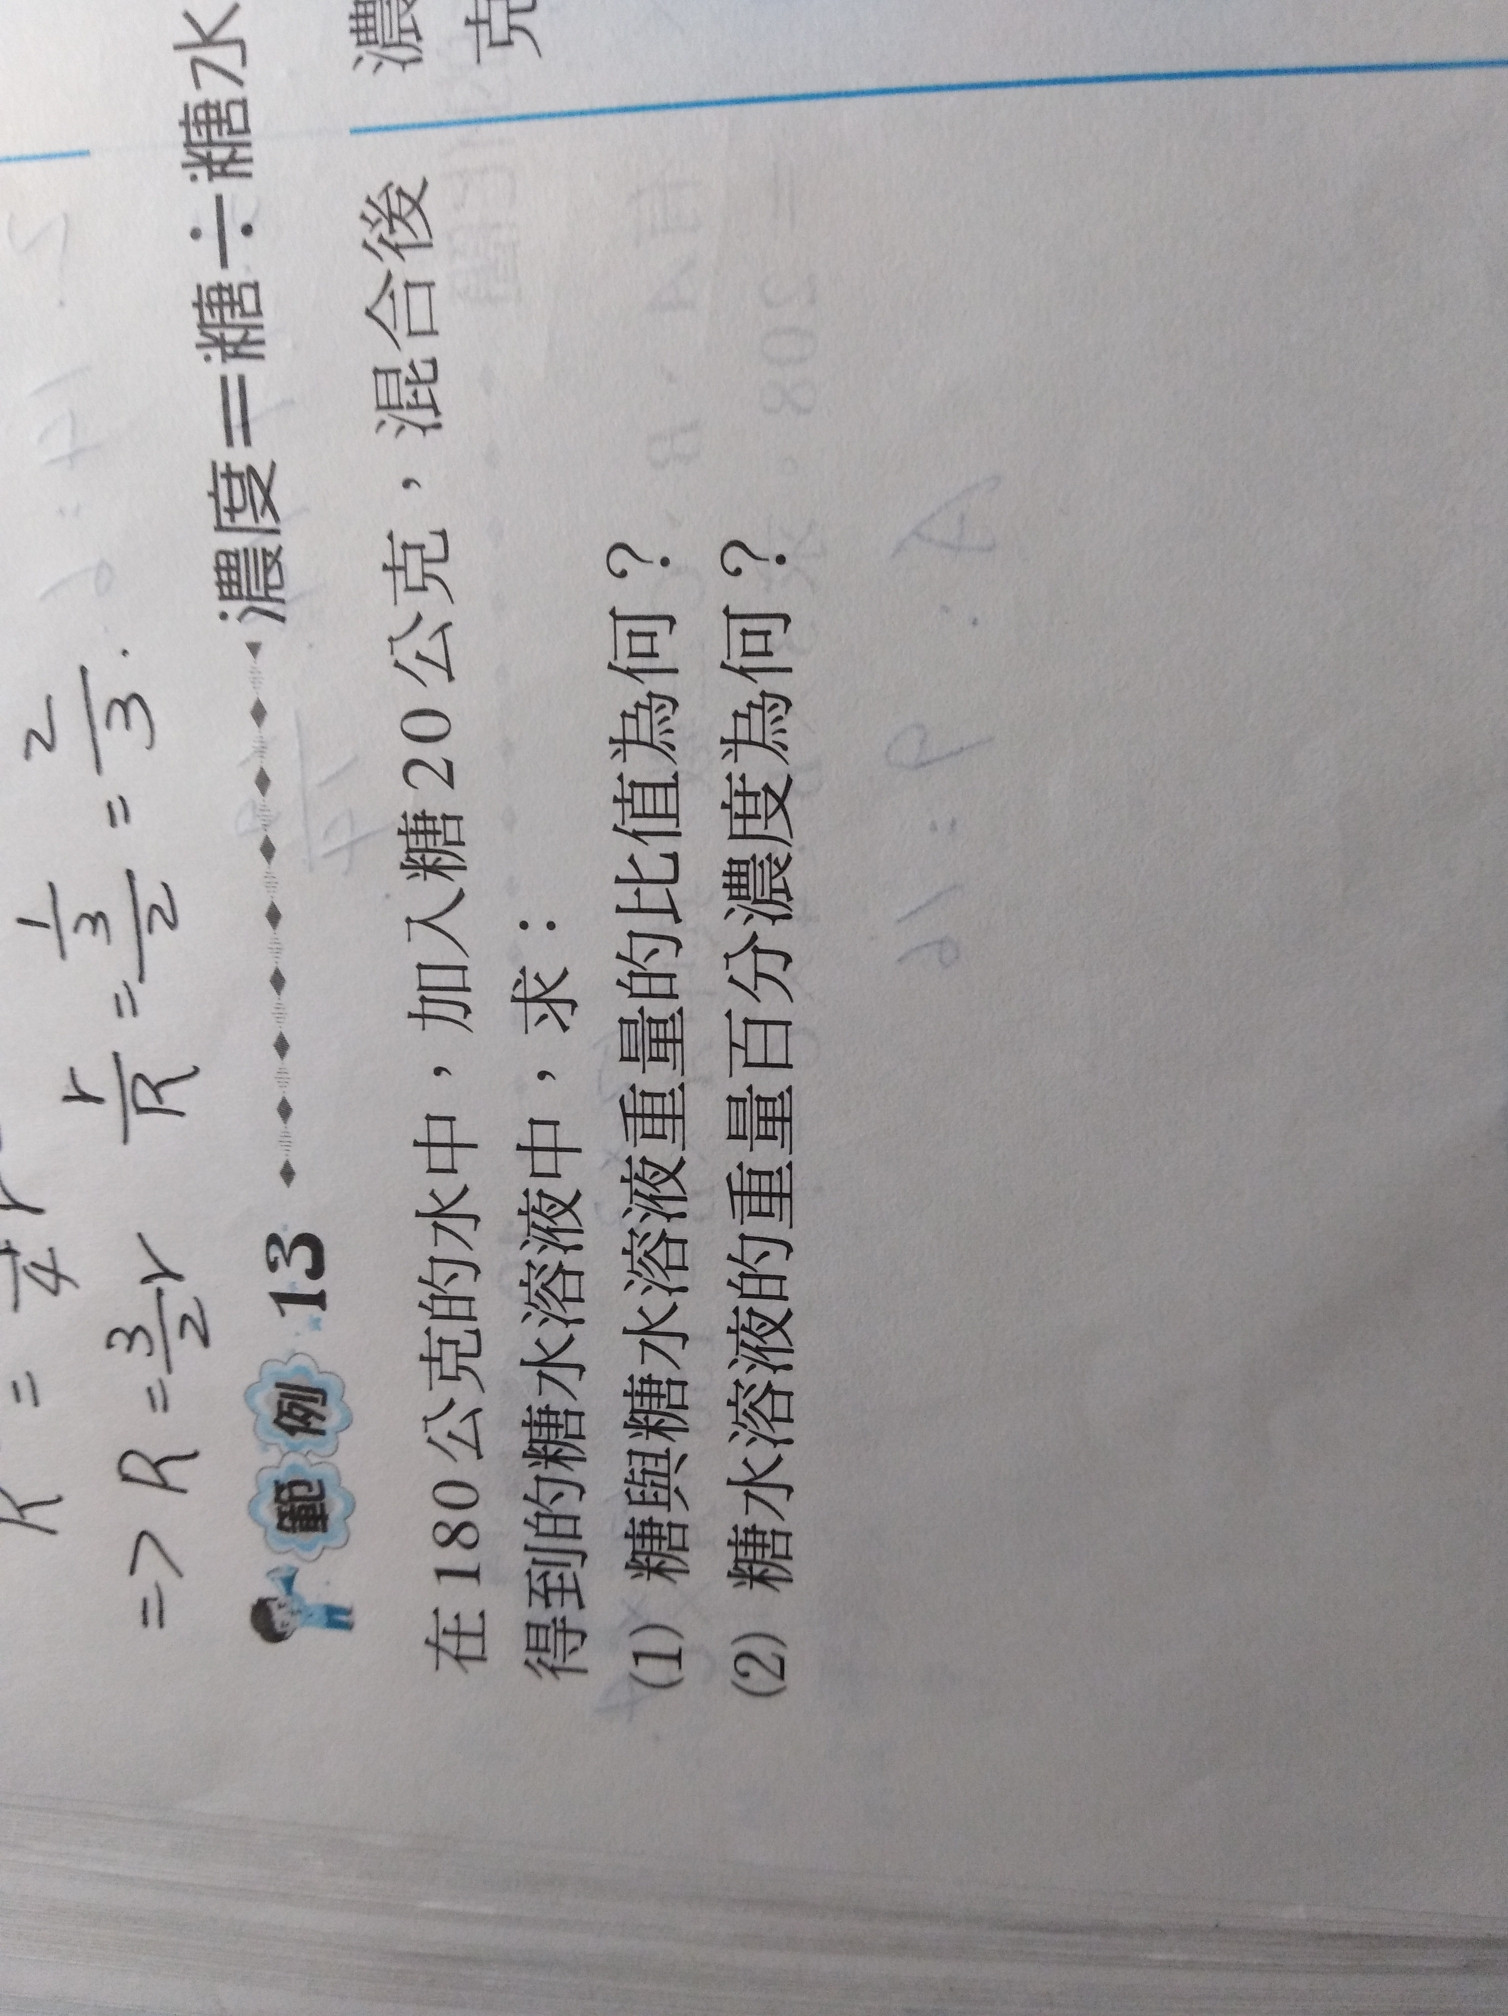 => R = 3/2 r r/R = 1/3/2 = 2/3.
範例 13 濃度＝糖÷糖水
在180公克的水中，加入糖20公克，混合後
得到的糖水溶液中，求：
(1) 糖與糖水溶液重量的比值為何？
(2) 糖水溶液的重量百分濃度為何？
濃
克